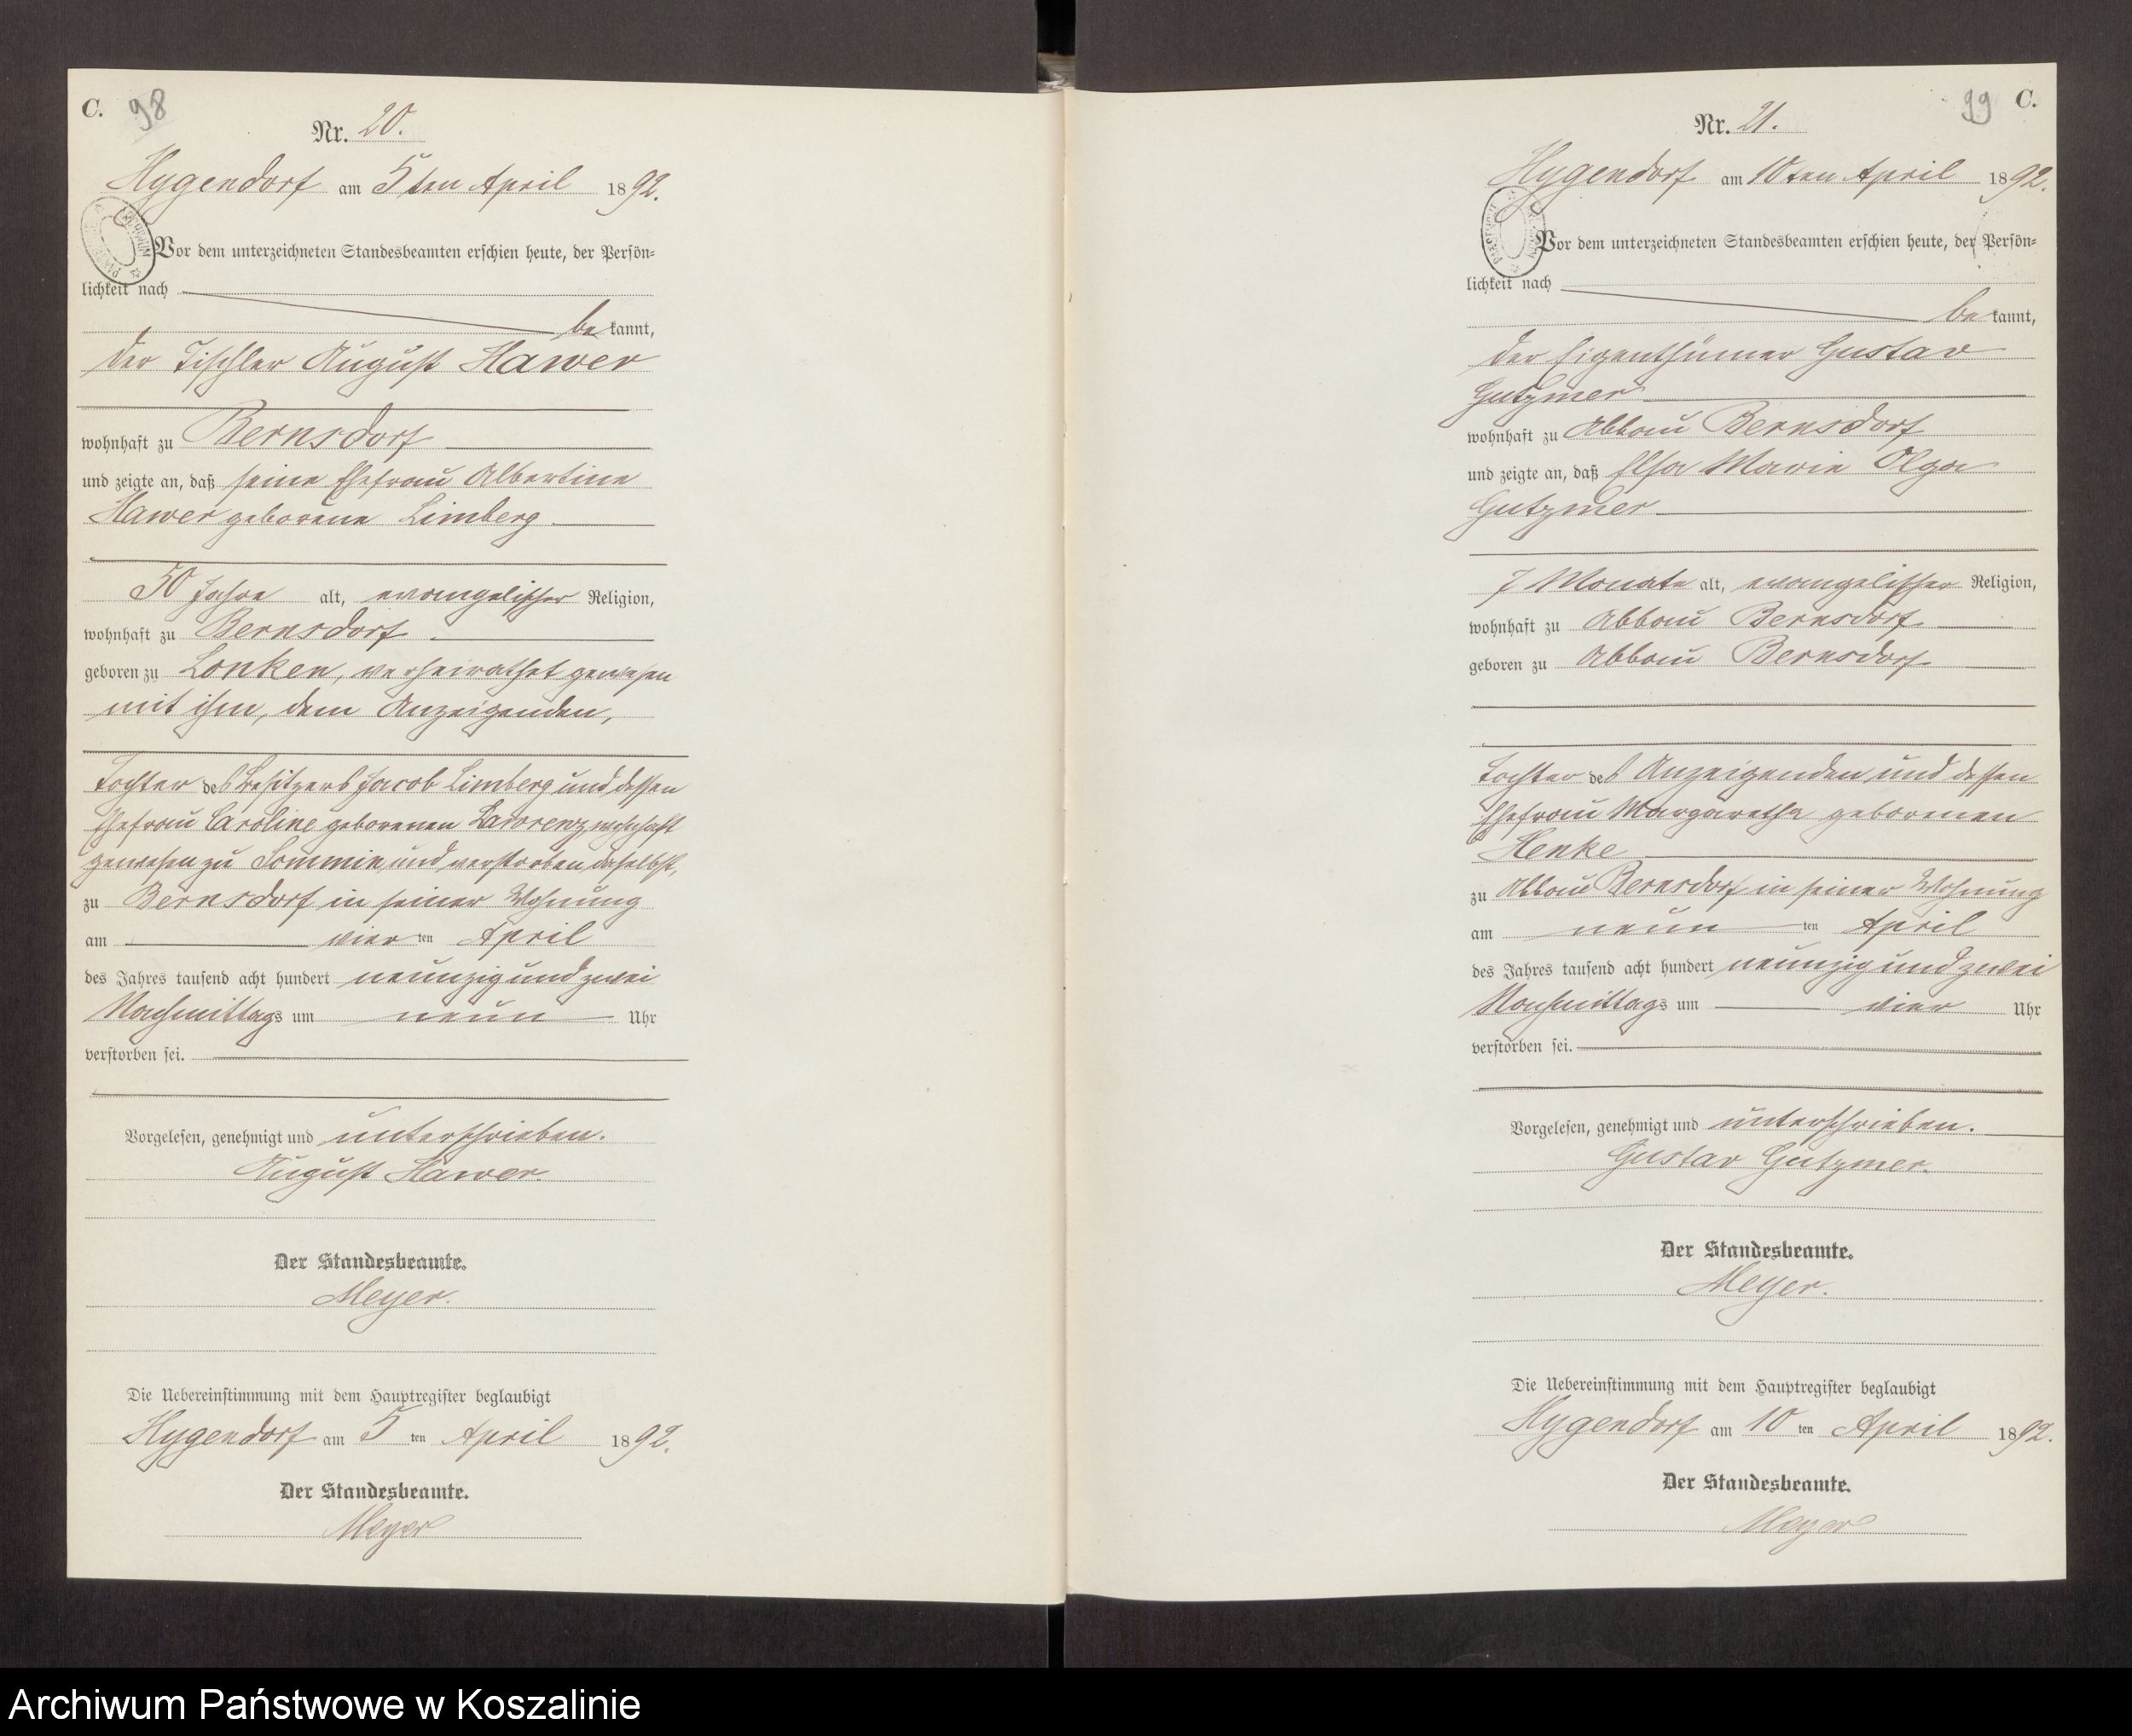 C. 98
Nr. 20.
Hygendorf am 5ten April 1892.
Vor dem unterzeichneten Standesbeamten erschien heute, der Persön-
lichkeit nach
bekannt,
der Tischler August Hawer
wohnhaft zu Bernsdorf
und zeigte an, daß seine Ehefrau Albertine
Hawer geborene Limberg
50 Jahre alt, evangelischer Religion,
wohnhaft zu Bernsdorf
geboren zu Lonken, verheirathet gewesen
mit ihm, dem Anzeigenden,
Tochter des Besitzers Jacob Limberg und dessen
Ehefrau Caroline geborenen Lawrenz wohnhaft
gewesen zu Sommin und verstorben daselbst,
zu Bernsdorf in seiner Wohnung
am vierten April
des Jahres tausend acht hundert neunzig und zwei
Nachmittags um neun Uhr
verstorben sei.
Vorgelesen, genehmigt und unterschrieben.
August Hawer.
Der Standesbeamte.
Meyer.
Die Uebereinstimmung mit dem Hauptregister beglaubigt
Hygendorf am 5ten April 1892.
Der Standesbeamte.
Meyer
99 C.
Nr. 21.
Hygendorf am 10ten April 1892.
Vor dem unterzeichneten Standesbeamten erschien heute, der Persön-
lichkeit nach
bekannt,
der Eigenthümer Gustav
Gutzmer
wohnhaft zu Abbau Bernsdorf
und zeigte an, daß Elsa Marie Olga
Gutzmer
7 Monate alt, evangelischer Religion,
wohnhaft zu Abbau Bernsdorf
geboren zu Abbau Bernsdorf
Tochter des Anzeigenden und dessen
Ehefrau Margaretha geborenen
Henke
zu Abbau Bernsdorf in seiner Wohnung
am neunten April
des Jahres tausend acht hundert neunzig und zwei
Nachmittags um vier Uhr
verstorben sei.
Vorgelesen, genehmigt und unterschrieben.
Gustav Gutzmer.
Der Standesbeamte.
Meyer.
Die Uebereinstimmung mit dem Hauptregister beglaubigt
Hygendorf am 10ten April 1892.
Der Standesbeamte.
Meyer
Archiwum Państwowe w Koszalinie